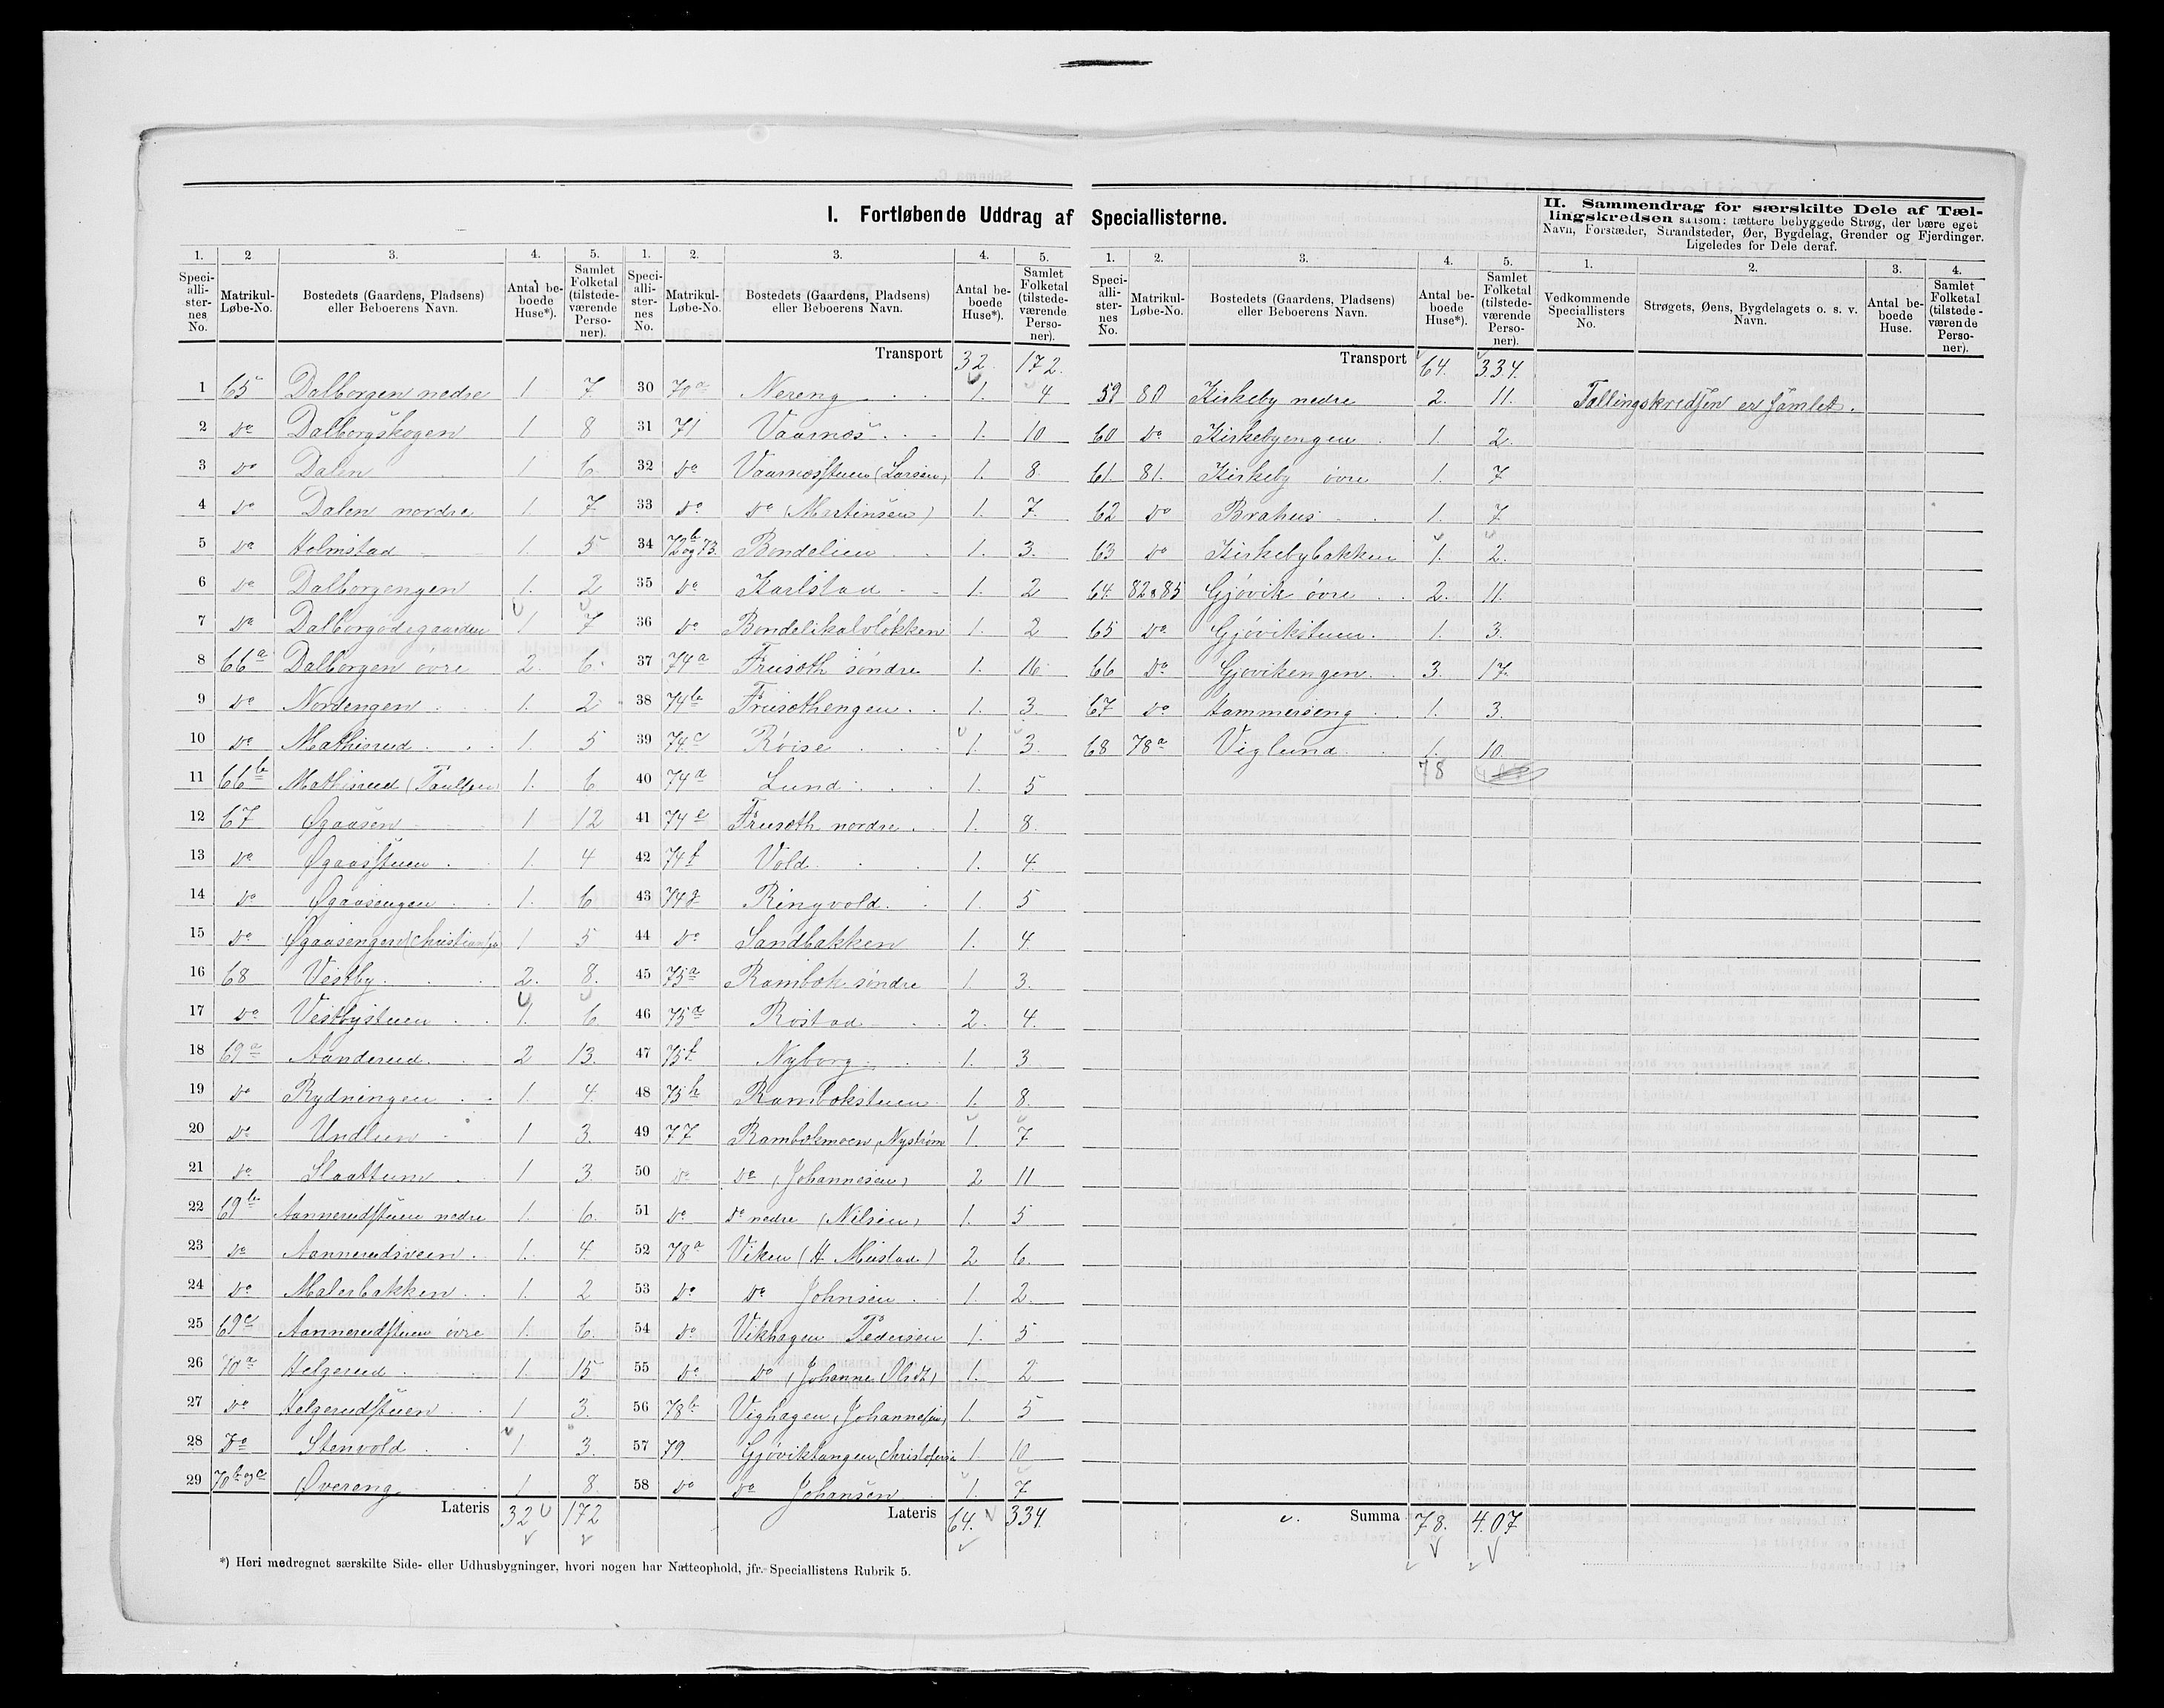 I. Fortløbende Uddrag af Speciallisterne.
II. Sammendrag for særskilte Dele af Tæl-
lingskredsen saasom: tættere bebyggede Strøg, der bære eget
Navn, Forstæder, Strandsteder, Øer, Bygdelag, Grender og Fjerdinger.
Ligeledes for Dele deraf.
1. 2 3. 4. 5.
Speciallisternes No. Matrikul-Løbe-No. Bostedets (Gaardens, Pladsens) eller Beboerens Navn. Antal beboede Huse*). Samlet Folketal (tilstedeværende Personer).
1 65 Dalborgen nedre 1 7.
2 do Dalborgskogen 1 8
3 do Dalen 1 6.
4 do Dalen nordre 1 7
5 do Holmstad 1. 5
6 do Dalborgengen 1. 2
7 do Dalborgødegaarden 1 7
8 66a Dalborgen øvre 2. 6.
9 do Nordengen 1. 2
10 do Mathisrud 1. 5
11 66b Mathisrud (Paulsen) 1. 6
12 67 Øgaasen 1 12
13 do Øgaasstuen 1. 4
14 do Øgaasengen 1. 6
15 do Øgaasengen (Christiansen) 1 5
16 68 Vestby 2. 8.
17 do Vestbystuen 1. 6
18 69a Aanderud 2 13.
19 do Rydningen 1. 4.
20 do Undlien 1 3.
21 do Slaattum 1 3
22 69b Aannerudstuen nedre 1. 6.
23 do Aannerudsveen 1. 4.
24 do Malerbakken 1. 2
25 69c Aannerudstuen øvre 1. 6.
26 70a Helgerud 1. 15
27 do Helgerudstuen 1 3.
28 Do Stenvold 1 3.
29 70b og c Øvereng 1 8.
Lateris 32 172
1. 2. 3. 4. 5.
Speciallisternes No. Matrikul-Løbe-No. Bostedets (Gaardens, Pladsens) eller Beboerens Navn. Antal beboede Huse*). Samlet Folketal (tilstedeværende Personer).
Transport 32. 172.
30 70a Nereng 1. 4
31 71 Vaarnæs 1. 10
32 do Vaarnæsstuen (Larsen) 1. 8.
33 do do (Martinsen) 1. 7.
34 72b og 73. Bondelien 1. 3.
35 do Karlstad 1. 2
36 do Bondelikalvløkken 1. 2
37 74a Frusæth søndre 1. 16
38 74b Frusæthengen 1. 3.
39 74c Røise 1. 3.
40 74d Lund 1. 5
41 74e Frusæth nordre 1. 8.
42 74f Vold 1. 4.
43 74g Ringvold 1. 5
44 do Sandbakken 1. 4.
45 75a Rambæk søndre 1. 3.
46 75d Rostad 2. 4.
47 75f Nyborg 1. 3
48 75h Rambækstuen 1. 8.
49 77 Rambekmoen (Nystrøm 1. 7
50 do do (Johannesen) 2 11
51 do do nedre (Nilsen) 1. 5
52 78a Viken (H Mustad) 2 6.
53 do do Johnsen 1. 2.
54 do Vikhagen Pedersen 1. 5
55 do do (Johanne Olsdt) 1. 2
56 78b Vighagen (Johannesen) 1. 5
57 79 Gjøviktangen (Christofersen 1 10
58 do do Johansen 1. 7
Lateris 64. 334.
1. 2. 3. 4. 5.
Speciallisternes No. Matrikul-Løbe-No. Bostedets (Gaardens, Pladsens) eller Beboerens Navn. Antal beboede Huse*). Samlet Folketal (tilstedeværende Personer).
Transport 64. 334.
59 80 Kirkeby nedre 2. 11.
60 do Kirkebyengen 1. 2.
61. 81. Kirkeby øvre 1. 7
62 do Brahus 1. 7.
63 do Kirkebybakken 1. 2.
64. 82 & 85 Gjøvik øvre 2. 11.
65 do Gjøvikstuen 1. 3.
66 do Gjøvikengen 3. 17.
67 do Hammerseng 1. 3.
68 78a Viglund 1. 10.
78
Summa 78. 407
1. 2. 3. 4.
Vedkommende Speciallisters No. Strøgets, Øens, Bygdelagets o. s. v. Navn. Antal beboede Huse. Samlet Folketal (tilstedeværende Personer).
Tællingskredsen er samlet.
*) Heri medregnet særskilte Side- eller Udhusbygninger, hvori nogen har Natteophold, jfr. Speciallistens Rubrik 5.